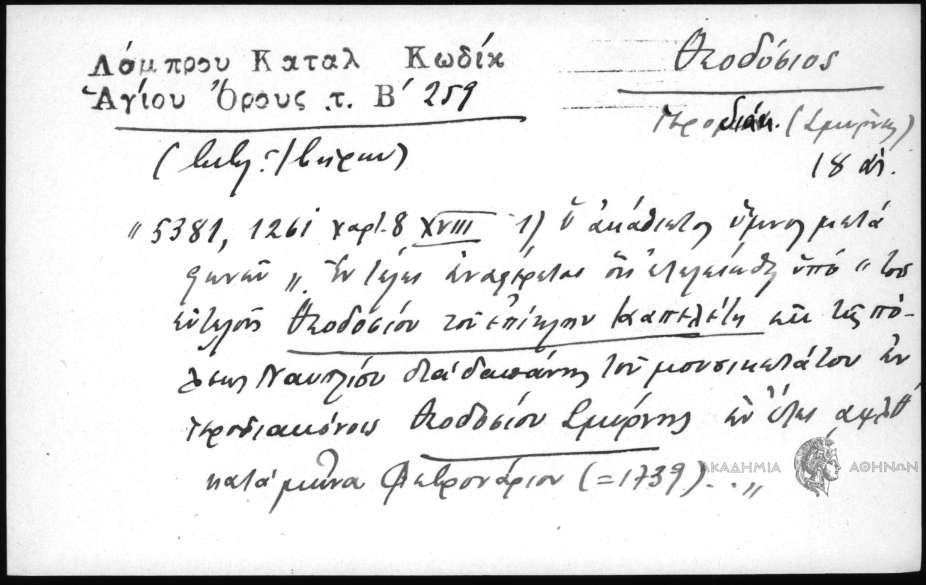 Λάμπρου Καταλ Κωδίκ
Ἁγίου Ὄρους τ. Β΄ 259
Θεοδόσιος
Ἱεροδιάκ. (Σμύρνης)
18 αἰ.
(Ἰβήρων)
" 5381, 1261 χαρτ. 8 XVIII 1) Ὁ ἀκάθιστος ὕμνος μετά
φωνῶν " Ἐν τέλει ἀναφέρεται ὅτι ἐτελειώθη ὑπό " τοῦ
εὐτελοῦς Θεοδοσίου τοῦ ἐπίκλην Καπελέτη ἐκ τῆς πό-
λεως Ναυπλίου διά δαπάνης τοῦ μουσικωτάτου ἐν
Ἱεροδιακόνοις Θεοδοσίου Σμύρνης ἐν ἔτει ͵αψλθ
κατά μῆνα Φεβρουάριον (=1739) . . "
ΑΚΑΔΗΜΙΑ ΑΘΗΝΩΝ